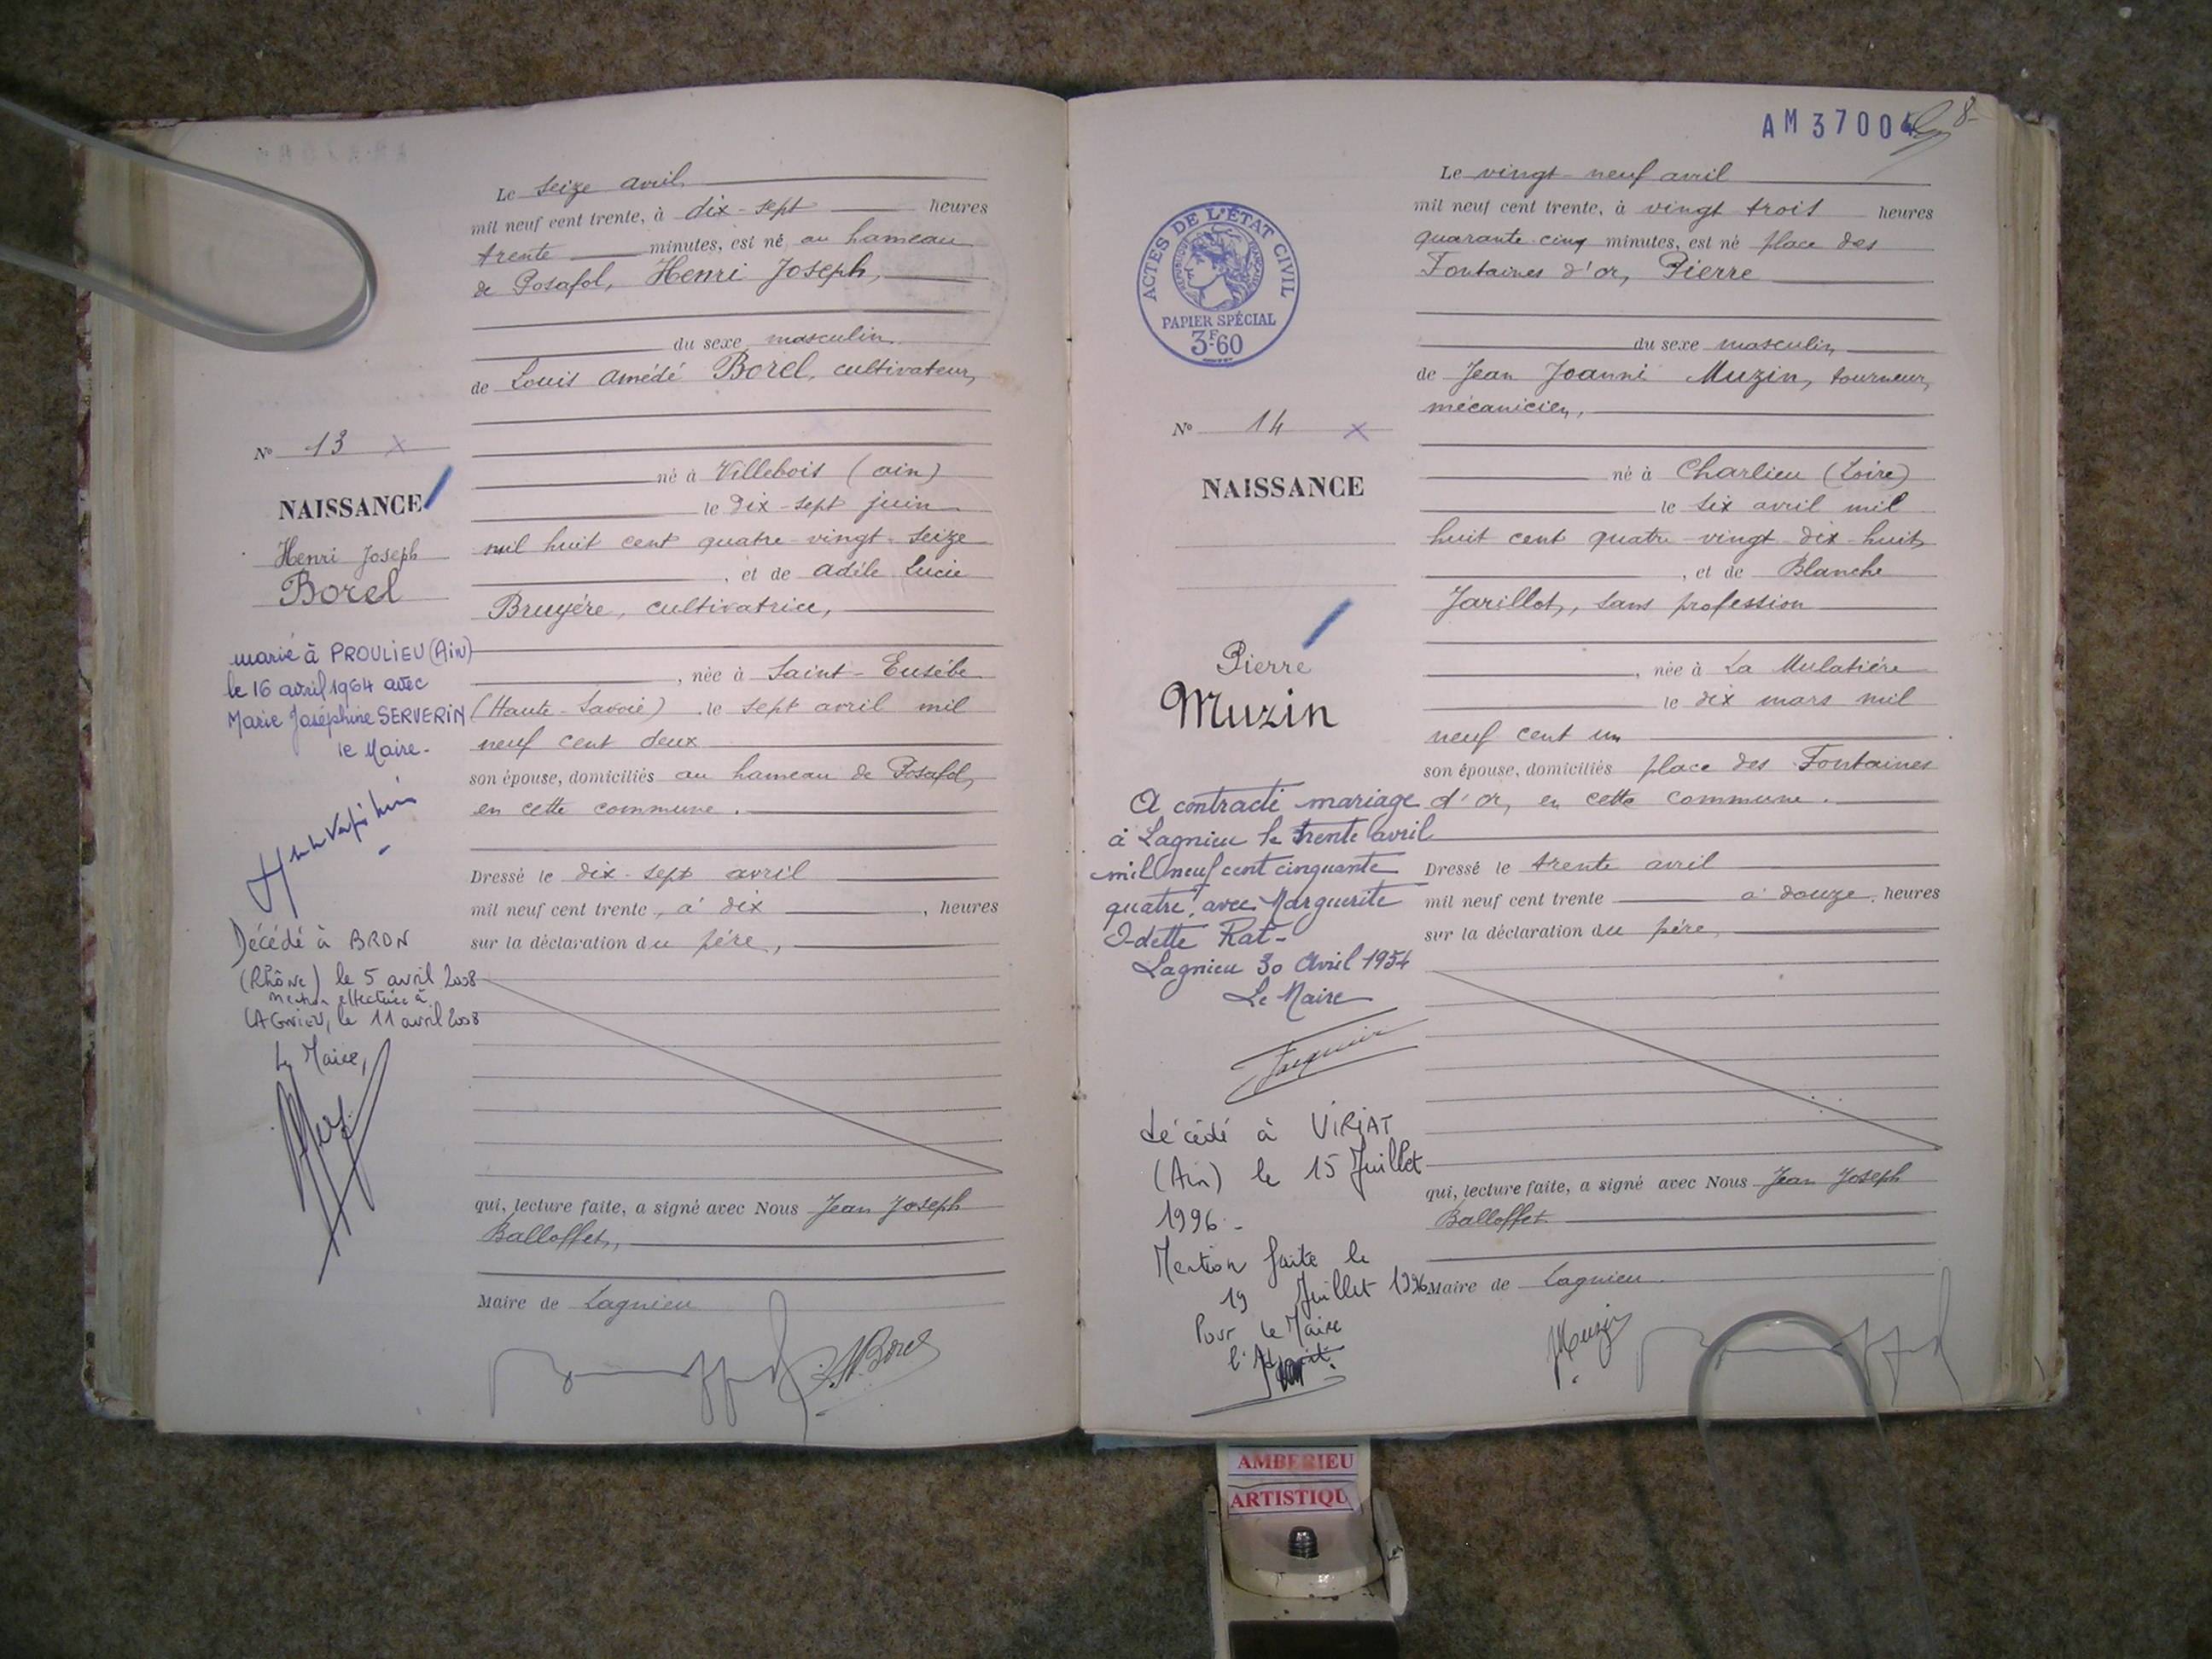 Le seize avril
mil neuf cent trente, à dix-sept heures
trente minutes, est né au hameau
de Posafol, Henri Joseph,
du sexe masculin
de Louis Amédé Borel, cultivateur,
né à Villebois (Ain)
le dix-sept juin
mil huit cent quatre-vingt-seize
, et de Adèle Lucie
Bruyére, cultivatrice,
, née à Saint-Eusébe
(Haute-Savoie) le sept avril mil
neuf cent deux
son épouse, domiciliés au hameau de Posafol,
en cette commune.
Dressé le dix-sept avril
mil neuf cent trente, à dix , heures
sur la déclaration du pére,
qui, lecture faite, a signé avec Nous Jean Joseph
Balloffet,
Maire de Lagnieu
Borel
Nº 13 X
NAISSANCE
Henri Joseph
Borel
marié à PROULIEU (Ain)
le 16 avril 1964 avec
Marie Joséphine SERVERIN
le Maire.
Décédé à BRON
(Rhône) le 5 avril 2008
Mention effectuée à
LAGNIEU, le 11 avril 2008
Le Maire,
AM 37004
8
Le vingt-neuf avril
mil neuf cent trente, à vingt trois heures
quarante-cinq minutes, est né place des
Fontaines d'or, Pierre
du sexe masculin,
de Jean Joanni Muzin, tourneur,
mécanicien,
né à Charlieu (Loire)
le six avril mil
huit cent quatre-vingt-dix-huit
, et de Blanche
Jarillot, sans profession
, née à La Mulatiére
le dix mars mil
neuf cent un
son épouse, domiciliés place des Fontaines
d'or, en cette commune.
Dressé le trente avril
mil neuf cent trente à douze, heures
sur la déclaration du pére,
qui, lecture faite, a signé avec Nous Jean Joseph
Balloffet
Maire de Lagnieu.
JMuzin
ACTES DE L'ÉTAT CIVIL
RÉPUBLIQUE FRANÇAISE
PAPIER SPÉCIAL
3F60
Nº 14 X
NAISSANCE
Pierre
Muzin
A contracté mariage
à Lagnieu le trente avril
mil neuf cent cinquante
quatre, avec Marguerite
Odette Rat-
Lagnieu 30 Avril 1954
Le Maire
décédé à VIRIAT
(Ain) le 15 Juillet
1996.-
Mention faite le
19 Juillet 1996
Pour le Maire
AMBERIEU
ARTISTIQU